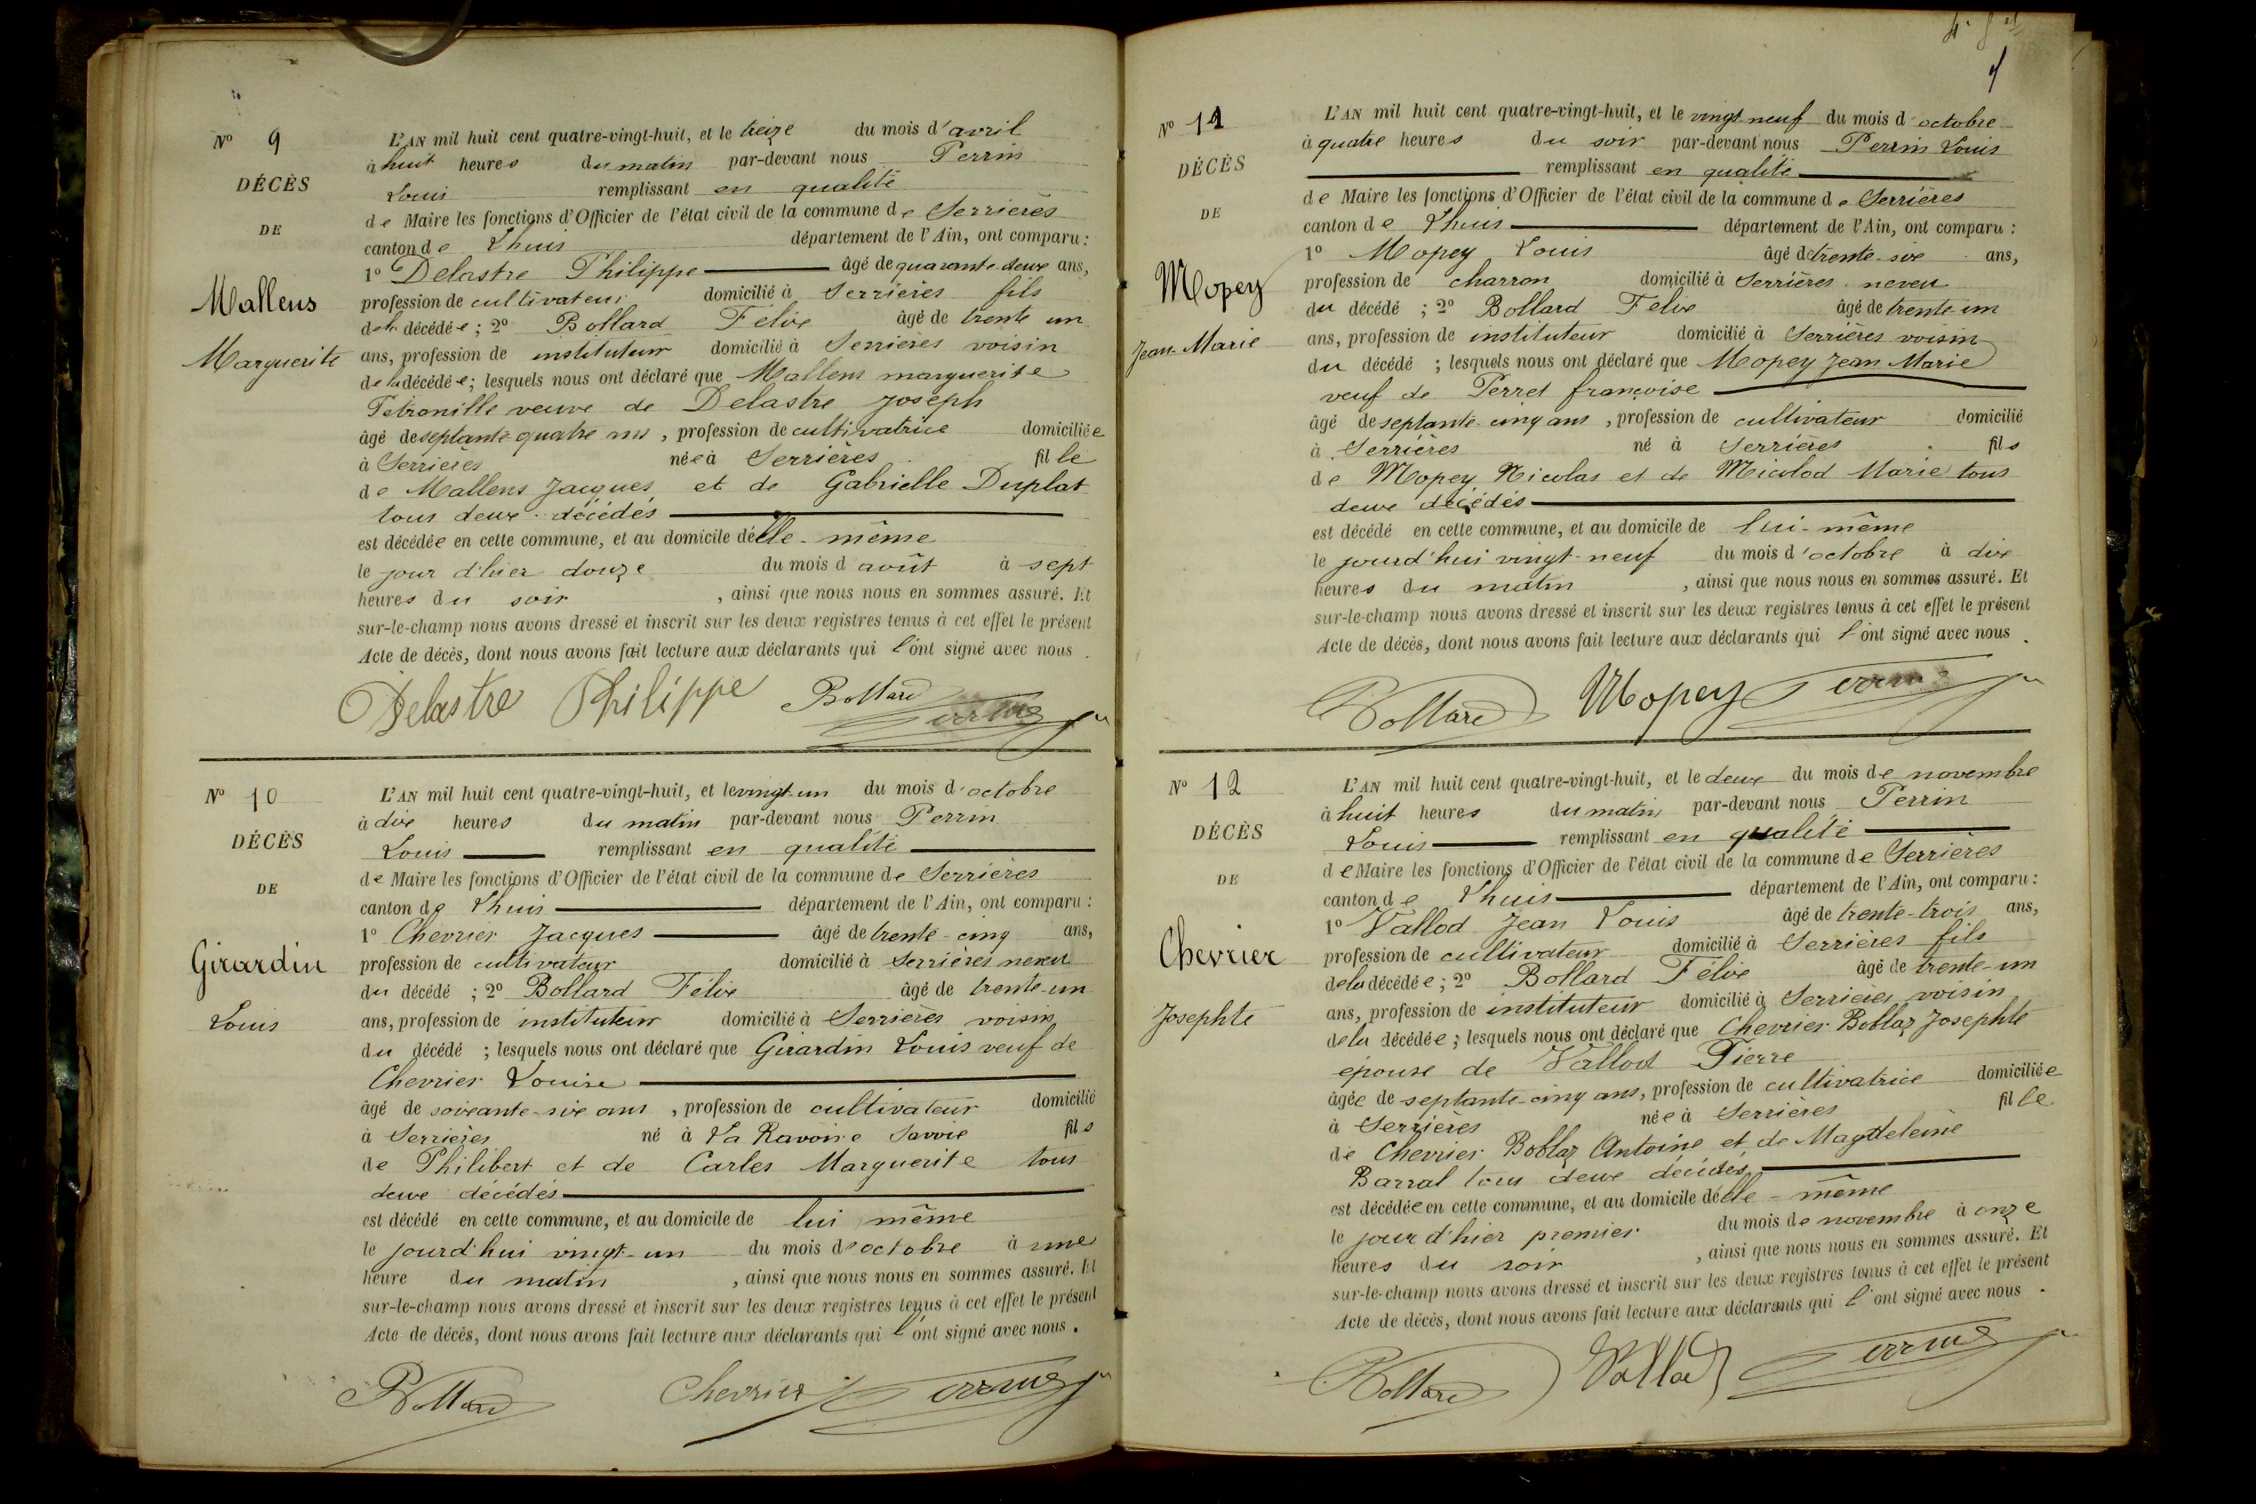 N° 9
DÉCÈS
DE
Mallens
Marguerite
L'AN mil huit cent quatre-vingt-huit, et le treize du mois d'avril
à huit heures du matin par-devant nous Perrin
Louis remplissant en qualité
de Maire les fonctions d'Officier de l'état civil de la commune de Serrières
canton de Lhuis département de l'Ain, ont comparu :
1° Delastre Philippe âgé de quarante-deux ans,
profession de cultivateur domicilié à Serrières fils
de la décédée ; 2° Bollard Félix âgé de trente un
ans, profession de instituteur domicilié à Serrières voisin
de la décédée ; lesquels nous ont déclaré que Mallens marguerite
Petronille veuve de Delastre Joseph
âgé de septante quatre ans, profession de cultivatrice domiciliée
à Serrières née à Serrières fille
de Mallens Jacques et de Gabrielle Duplat
tous deux décédés
est décédée en cette commune, et au domicile d'elle-même
le jour d'hier douze du mois d août à sept
heures du soir, ainsi que nous nous en sommes assuré. Et
sur-le-champ nous avons dressé et inscrit sur les deux registres tenus à cet effet le présent
Acte de décès, dont nous avons fait lecture aux déclarants qui l'ont signé avec nous.
Delastre Philippe Bollard Perrin
N° 10
DÉCÈS
DE
Girardin
Louis
L'AN mil huit cent quatre-vingt-huit, et le vingt-un du mois d'octobre
à dix heures du matin par-devant nous Perrin
Louis remplissant en qualité
de Maire les fonctions d'Officier de l'état civil de la commune de Serrières
canton de Lhuis département de l'Ain, ont comparu :
1° Chevrier Jacques âgé de trente-cinq ans,
profession de cultivateur domicilié à Serrières neveu
du décédé ; 2° Bollard Félix âgé de trente-un
ans, profession de instituteur domicilié à Serrières voisin
du décédé ; lesquels nous ont déclaré que Girardin Louis veuf de
Chevrier Louise
âgé de soixante-six ans, profession de cultivateur domicilié
à Serrières né à La Ravoire Savoie fils
de Philibert et de Carles Marguerite tous
deux décédés
est décédé en cette commune, et au domicile de lui même
le jourd'hui vingt-un du mois d'octobre à une
heure du matin, ainsi que nous nous en sommes assuré. Et
sur-le-champ nous avons dressé et inscrit sur les deux registres tenus à cet effet le présent
Acte de décès, dont nous avons fait lecture aux déclarants qui l'ont signé avec nous.
Bollard Chevrier Perrin
N° 11
DÉCÈS
DE
Mopey
Jean-Marie
L'AN mil huit cent quatre-vingt-huit, et le vingt neuf du mois d'octobre
à quatre heures du soir par-devant nous Perrin Louis
remplissant en qualité
de Maire les fonctions d'Officier de l'état civil de la commune de Serrières
canton de Lhuis département de l'Ain, ont comparu :
1° Mopey Louis âgé de trente-six ans,
profession de charron domicilié à Serrières neveu
du décédé ; 2° Bollard Félix âgé de trente un
ans, profession de instituteur domicilié à Serrières voisin
du décédé ; lesquels nous ont déclaré que Mopey Jean Marie
veuf de Perret françoise
âgé de septante-cinq ans, profession de cultivateur domicilié
à Serrières né à Serrières fils
de Mopey Nicolas et de Micolod Marie tous
deux décédés
est décédé en cette commune, et au domicile de lui-même
le jourd'hui vingt-neuf du mois d'octobre à dix
heures du matin, ainsi que nous nous en sommes assuré. Et
sur-le-champ nous avons dressé et inscrit sur les deux registres tenus à cet effet le présent
Acte de décès, dont nous avons fait lecture aux déclarants qui l'ont signé avec nous.
Bollard Mopey Perrin
N° 12
DÉCÈS
DE
Chevrier
Josephte
L'AN mil huit cent quatre-vingt-huit, et le deux du mois de novembre
à huit heures du matin par-devant nous Perrin
Louis remplissant en qualité
de Maire les fonctions d'Officier de l'état civil de la commune de Serrières
canton de Lhuis département de l'Ain, ont comparu :
1° Vallod Jean Louis âgé de trente-trois ans,
profession de cultivateur domicilié à Serrières fils
de la décédée ; 2° Bollard Félix âgé de trente-un
ans, profession de instituteur domicilié à Serrières voisin
de la décédée ; lesquels nous ont déclaré que Chevrier Boblaz Josephte
épouse de Vallod Pierre
âgée de septante-cinq ans, profession de cultivatrice domiciliée
à Serrières née à Serrières fille
de Chevrier Boblaz Antoine et de Magdeleine
Barral tous deux décédés
est décédée en cette commune, et au domicile d'elle-même
le jour d'hier premier du mois de novembre à onze
heures du soir, ainsi que nous nous en sommes assuré. Et
sur-le-champ nous avons dressé et inscrit sur les deux registres tenus à cet effet le présent
Acte de décès, dont nous avons fait lecture aux déclarants qui l'ont signé avec nous.
Bollard Vallod Perrin